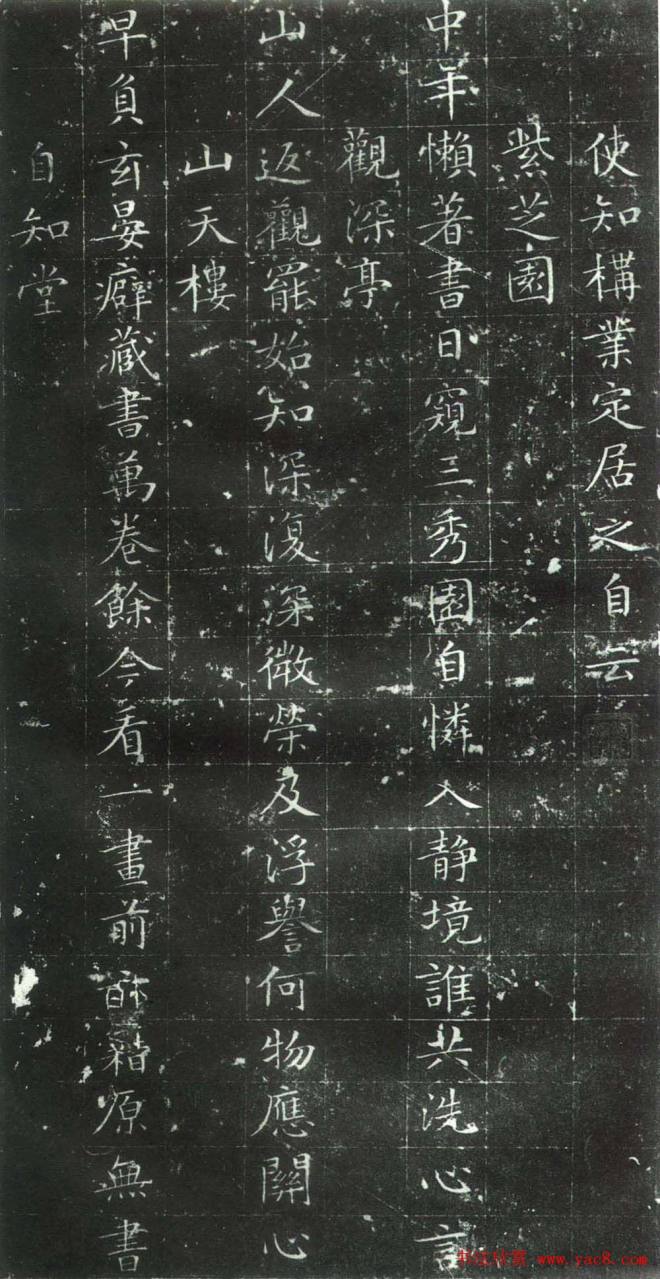 使知構業定居之自云
紫芝園
中年懶著書日窺三秀園自憐入靜境誰共洗心言
觀深亭
山人返觀罷始知深復深微榮及浮譽何物應關心
山天樓
早負玄晏癖藏書萬卷餘今看一畫前原無書
自知堂
书法欣赏 www.yac8.com